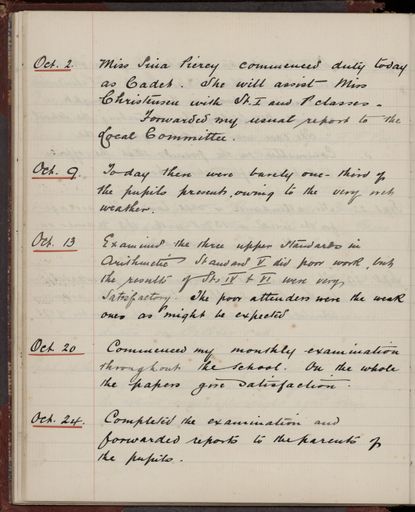 Oct. 2. Miss Sina Piercy commenced duty today
as Cadet. She will assist Miss
Christensen with St. I and P classes.
Forwarded my usual report to the
Local Committee.
Oct. 9. To-day there were barely one-third of
the pupils present, owing to the very wet
weather.
Oct. 13 Examined the three upper Standards in
Arithmetic. Standard V did poor work, but
the results of Sts IV & VI were very
satisfactory. The poor attenders were the weak
ones as might be expected
Oct. 20 Commenced my monthly examination
throughout the school. On the whole
the papers give satisfaction.
Oct. 24. Completed the examination and
forwarded reports to the parents of
the pupils.